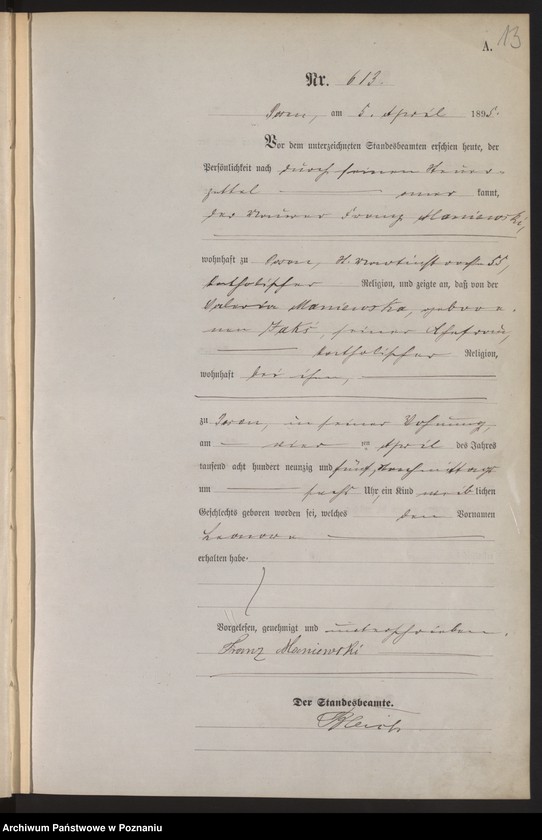 A. 13
Nr. 613.
Posen, am 5. April 1895.
Vor dem unterzeichneten Standesbeamten erschien heute, der
Persönlichkeit nach durch seinen Steuer-
zettel anerkannt,
der Maurer Franz Maniewski,
wohnhaft zu Posen, St. Martinstraße 55,
katholischer Religion, und zeigte an, daß von der
Valeria Maniewska, gebore-
nen Jakś, seiner Ehefrau,
katholischer Religion,
wohnhaft bei ihm,
zu Posen, in seiner Wohnung,
am vier ten April des Jahres
tausend acht hundert neunzig und fünf, Nachmittags
um sechs Uhr, ein Kind weiblichen
Geschlechts geboren worden sei, welches den Vornamen
Leonore
erhalten habe.
Vorgelesen, genehmigt und unterschrieben.
Franz Maniewski
Der Standesbeamte.
Archiwum Państwowe w Poznaniu